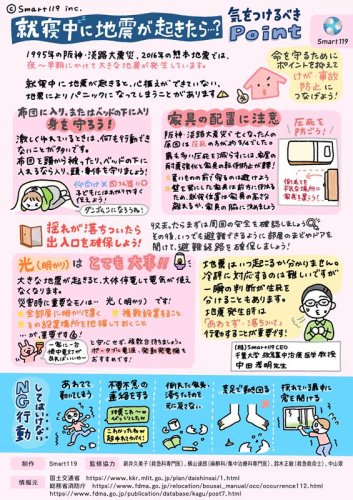 © Smart119 inc.
就寝中に地震が起きたら…?
気をつけるべき
Point
Smart119
1995年の阪神・淡路大震災、2016年の熊本地震では、
夜〜早朝にかけて大きな地震が発生しています。
就寝中に地震が起きると、心構えができていない
地震によりパニックになってしまうことがあります
命を守るために
ポイントを抑えて
けが・事故
防止に
つなげよう!
布団に入り、またはベッドの下に入り
身を守ろう!
激しくゆれているときは、何も行動でき
ないことが多いです。
布団を頭から被ったり、ベッドの下に
入れるなら入り、頭・身体を守りましょう!
仰向け×
四つん這い○
子どもにはこれがわかりやすく
伝えよう!
ダンゴムシになろうね!
家具の配置に注意
阪神・淡路大震災で亡くなった人の
原因は圧死のものが約3/4でした。
圧死を
防ごう!
倒れても
平気な場所に
家具を置こう!
揺れが落ちついたら
出入口を確保しよう!
収まったらまずは周囲の安全を確認しましょう
開けて、避難経路を確保しましょう!
光(明かり)は とても大事!!
大きな地震が起きると、大体停電して電気が使え
なくなります。
災害時に重要なモノは…光(明かり)です!
★全部屋に明かりを置く
★複数設置すること
★その設置場所を把握しておくこと
…が重要です!
地震はいつ起こるか分かりません。
冷静に対応するのは難しいですが
一瞬の判断が生死を
分けることもあります。
地震発生時は
「あわてず・落ちついて」
行動することが重要です!
(株)Smart119CEO
千葉大学 救急集中治療医学 教授
中田 孝明先生
してはいけない
NG行動
あわてて
動いてしまう
不要不急の
連絡をする
倒れた家具、
落ちたものを
元に戻さない
素足で動き回る
揺れている最中に
窓を開ける
制作 Smart119
監修協力 新井久美子(救急科専門医)、横山達郎(麻酔科/集中治療専門医)、鈴木正敏(救急救命士)、中山翠
情報元
国土交通省 https://www.kkr.mlit.go.jp/plan/daishinsai/1.html
総務省消防庁 https://www.fdma.go.jp/relocation/bousai_manual/occ/occurrence112.html
https://www.fdma.go.jp/publication/database/kagu/post7.html